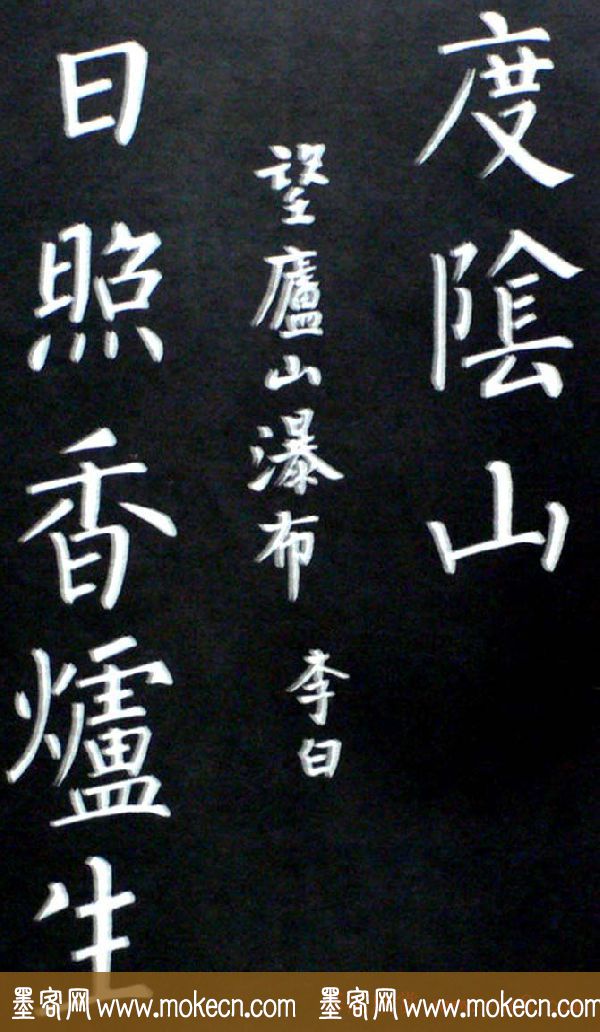 度陰山
望廬山瀑布 李白
日照香爐生
墨客网 www.mokecn.com 墨客网 www.mokecn.com